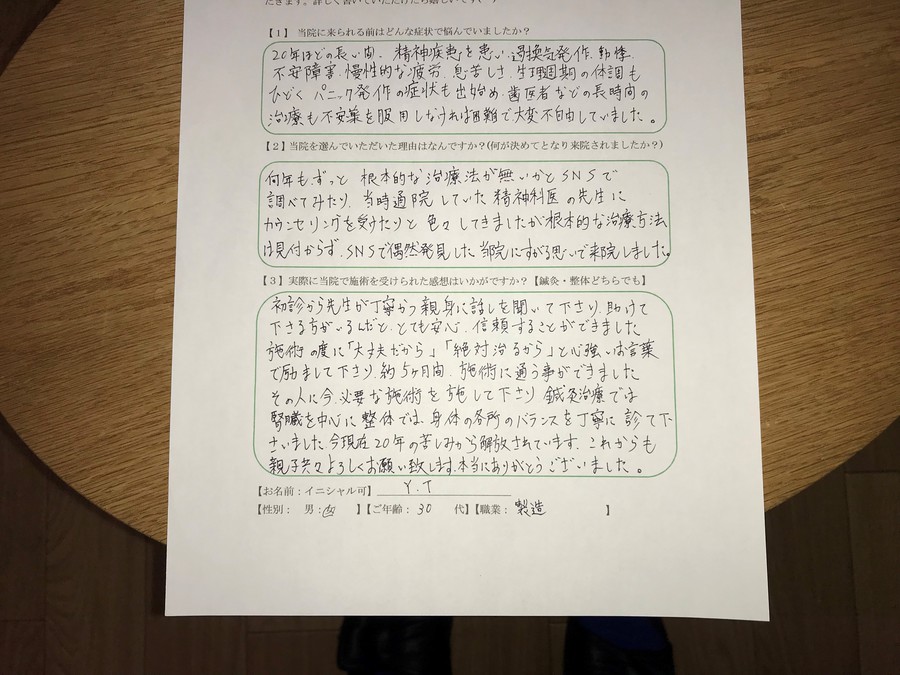 だきます。詳しく書いていただけたら嬉しいです(^^)
【1】 当院に来られる前はどんな症状で悩んでいましたか？
20年ほどの長い間、精神疾患を患い、過換気発作、動悸、
不安障害、慢性的な疲労、息苦しさ、生理周期の体調も
ひどく パニック発作の症状も出始め、歯医者などの長時間の
治療も不安薬を服用しなければ困難で大変不自由していました。
【2】当院を選んでいただいた理由はなんですか？(何が決めてとなり来院されましたか？)
何年もずっと 根本的な治療法が無いかとSNSで
調べてみたり、当時通院していた精神科医の先生に
カウンセリングを受けたりと色々してきましたが根本的な治療方法
は見付からず、SNSで偶然発見した当院にすがる思いで来院しました。
【3】実際に当院で施術を受けられた感想はいかがですか？【鍼灸・整体どちらでも】
初診から先生が丁寧かつ親身に話しを聞いて下さり、助けて
下さる方がいるんだと、とても安心、信頼することができました
施術の度に「大丈夫だから」「絶対治るから」と心強いお言葉
で励まして下さり、約5ヶ月間、施術に通う事ができました
その人に今、必要な施術を施して下さり 鍼灸治療では
腎臓を中心に整体では、身体の各所のバランスを丁寧に診て下
さいました。今現在20年の苦しみから解放されています。これからも
親子共々よろしくお願い致します。本当にありがとうございました。
【お名前：イニシャル可】 Y.T
【性別： 男：女 】【ご年齢： 30 代】【職業： 製造 】